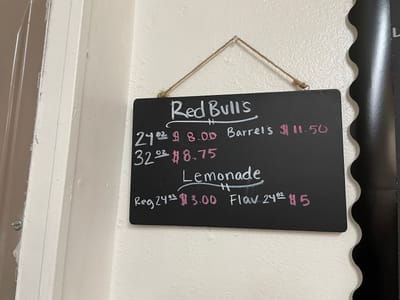 Red Bulls
24oz $8.00 Barrels $11.50
32oz $8.75
Lemonade
Reg 24oz $3.00 Flav 24oz $5